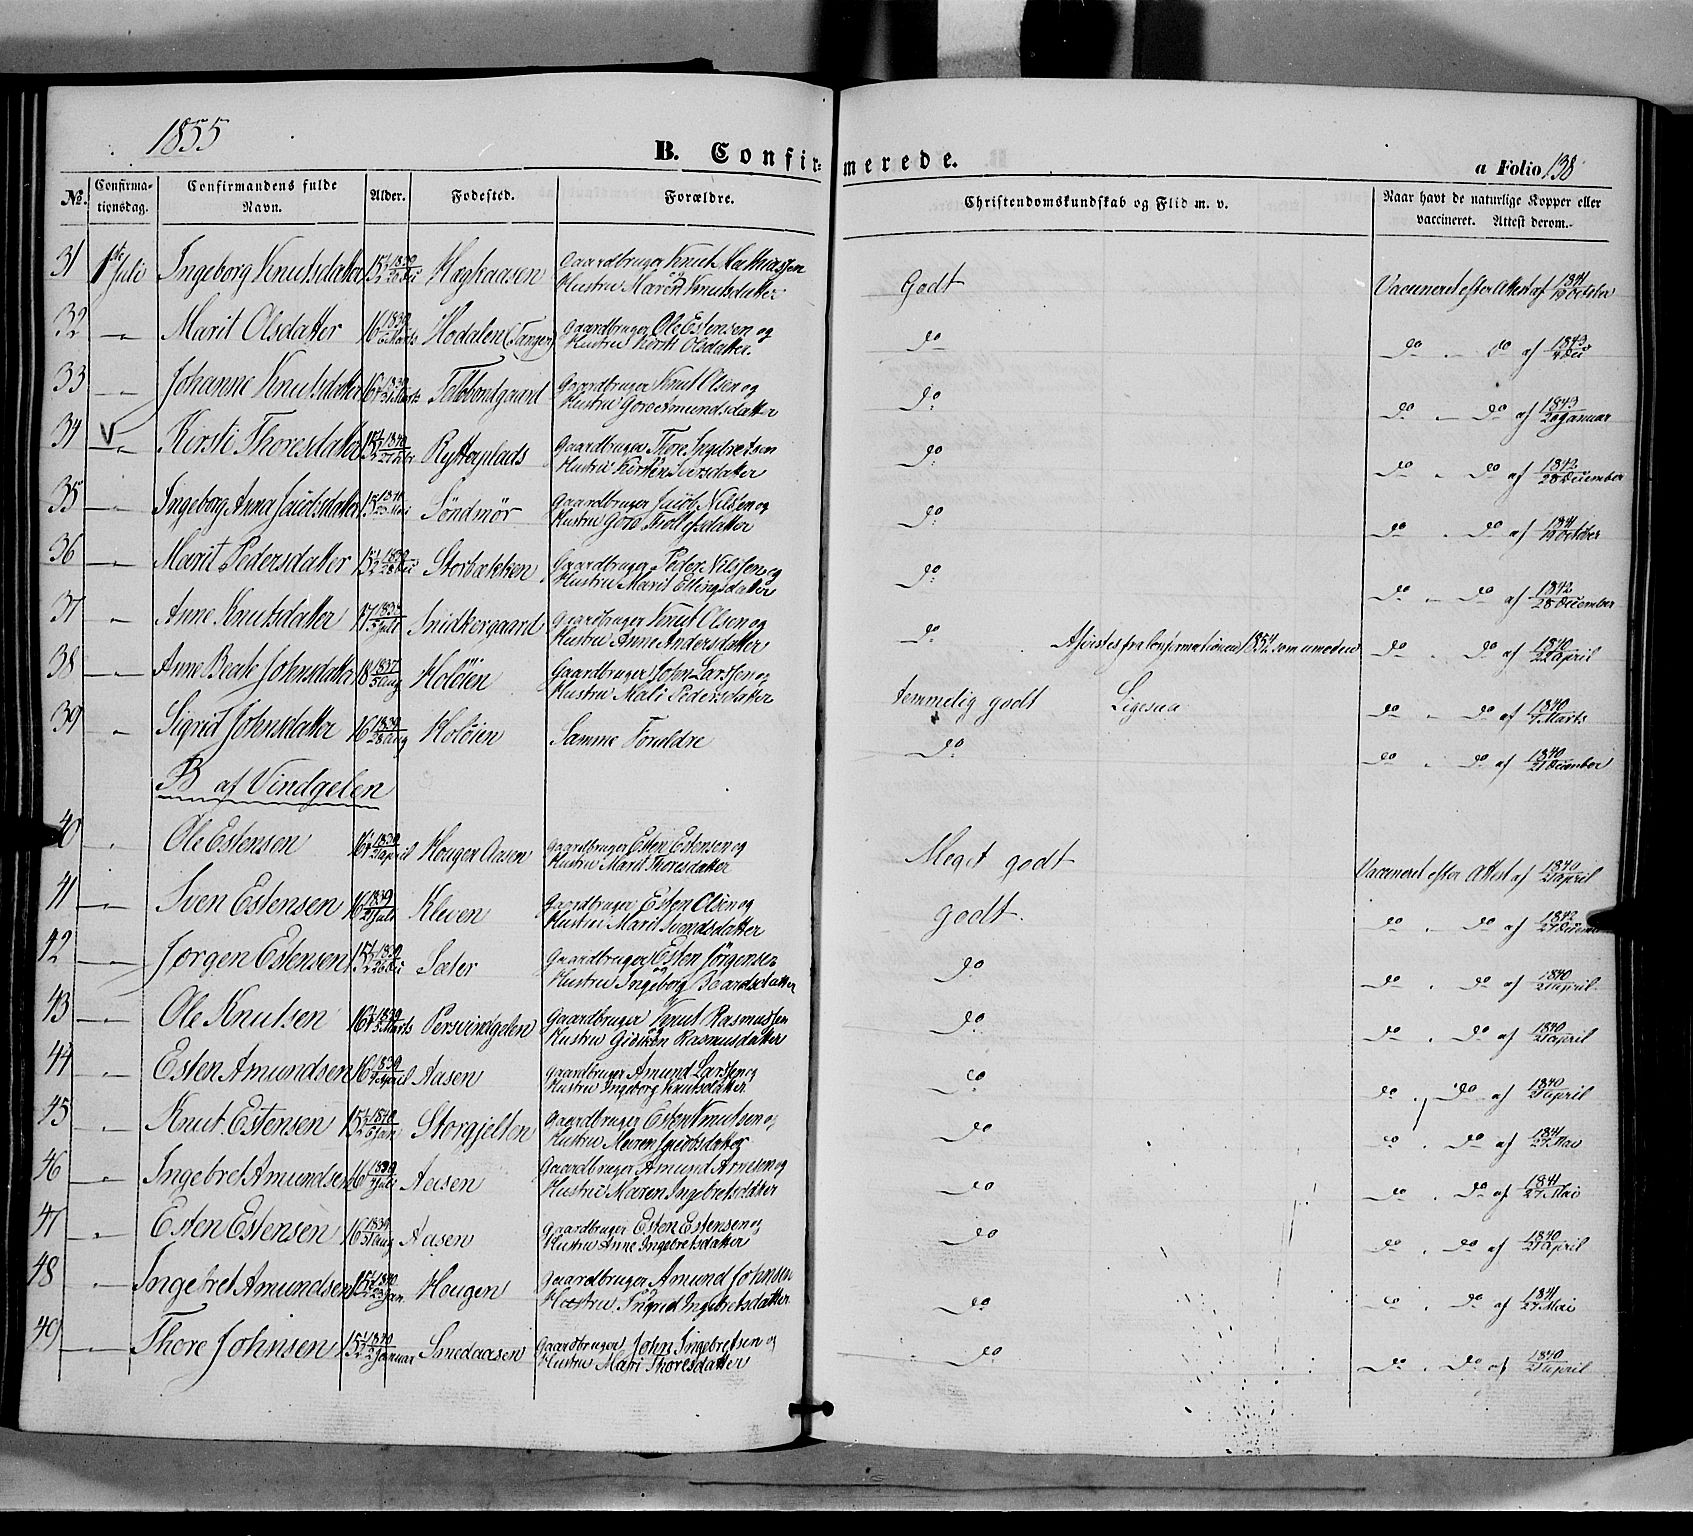 1855
B. Confirmerede.
a Folio 138
No. Confirmationsdag. Confirmandens fulde Navn. Alder. Fodested. Forældre. Christendomskundskab og Flid m. v. Naar havt de naturlige Kopper eller vaccineret. Attest derom.
31 1ste Juli Ingeborg Knutsdatter 15½ 1839 Gaardbruger Knut Mathiassen og
Hustru Maren Knutsdatter Godt Vaccineret efter Attest af 1841 19 October
32 Marit Olsdatter 16 1839 Marts Hodalen (Tangen) Gaardbruger Ole Estensen og
Hustru Kirsti Olsdatter. Do Do Do af 1843 4 Dec
33 Johanne Knutsdatter 16 1839 Marts Gaardbruger Knut Olsen og
Hustru Goro Amundsdatter Do Do Do af 1843 20 Januar
34 V Kirsti Thoresdatter 15 1840 Rytterplads Gaardbruger Thore Ingebretsen
Hustru Kirsten Iversdatter Do Do Do af 1842 28 December
35 Ingeborg Anna Jacobsdatter 15 Mai Söndmör Gaardbruger Jacob Nilsen og
Hustru Goro Do Do Do af 1841 19 October
36 Marit Pedersdatter 15½ 1839 Storbækken Gaardbruger Peder Nilssen og
Hustru Marit Ellingsdatter Do Do Do af 1842 28 December
37 Anne Knutsdatter 17 Juli Snidkergaard Gaardbruger Knut Olsen og
Hustru Anne Andersdatter Do Afvistes fra Confirmationen 1854 som umoden Do Do af 1840 22 April
38 Anne Beate Johnsdatter 18 1837 Aug Holöien Gaardbruger John Larssen og
Hustru Mali Pedersdatter temmelig godt Ligesaa Do Do af 1840 Marts
39 Sigrid Johnsdatter 16 1839 28 Aug Holöien Samme Foreldre Do Do Do af 1840 21 December
B af Vindgelen
40 Ole Estensen 16 1839 April Hougen Aasen Gaardbruger Esten Estensen og
Hustru Marit Thoresdatter Meget godt Vaccineret efter Attest af 1840 21 April
41 Sven Estensen 16 1839 Juli Kleven Gaardbruger Esten Olsen og
Hustru Marit Svendsdatter godt. Do Do af 1842 27 Decemb
42 Jørgen Estensen 15½ 1839 Sæter Gaardbruger Esten Jörgensen
og Hustru Ingeborg Baardsdatter Do Do Do af 1840 21 April
43 Ole Knutsen 16 1839 Marts Persvindgelen Gaardbruger Knut Rasmussen
og Hustru Gidsken Rasmusdatter Do Do Do af 1840 21 April
44 Esten Amundsen 16 1839 April Aasen Gaardbruger Amund Larssen og
Hustru Ingeborg Knutsdatter Do Do Do af 1840 21 April
45 Knut Estensen 15½ 1840 Jan Storgjelten Gaardbruger Esten Knutsen og
Hustru Maren Jacobsdatter Do Do Do af 1841 27 Mai
46 Ingebret Amundsen 16 1839 Juli Aasen Gaardbruger Amund Arnesen og
Hustru Maren Ingebretsdatter Do Do Do af 1841 27 Mai
47 Esten Estensen 16 1839 Aug Aasen Gaardbruger Esten Estensen og
Hustru Anne Ingebretsdatter Do Do Do af 1840 21 April
48 Ingebret Amundsen 15½ 1840 Jan Hougen Gaardbruger Amund Johnsen
og Hustru Sigrid Ingebretsdatter Do Do Do af 1841 27 Mai
49 Thore Johnsen 15½ 1840 2 Januar Smedaasen Gaardbruger John Ingebretsen og
Hustru Mari Thoresdatter Do Do Do af 1840 21 April